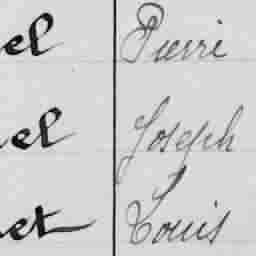 el Pierre
el Joseph
et Louis